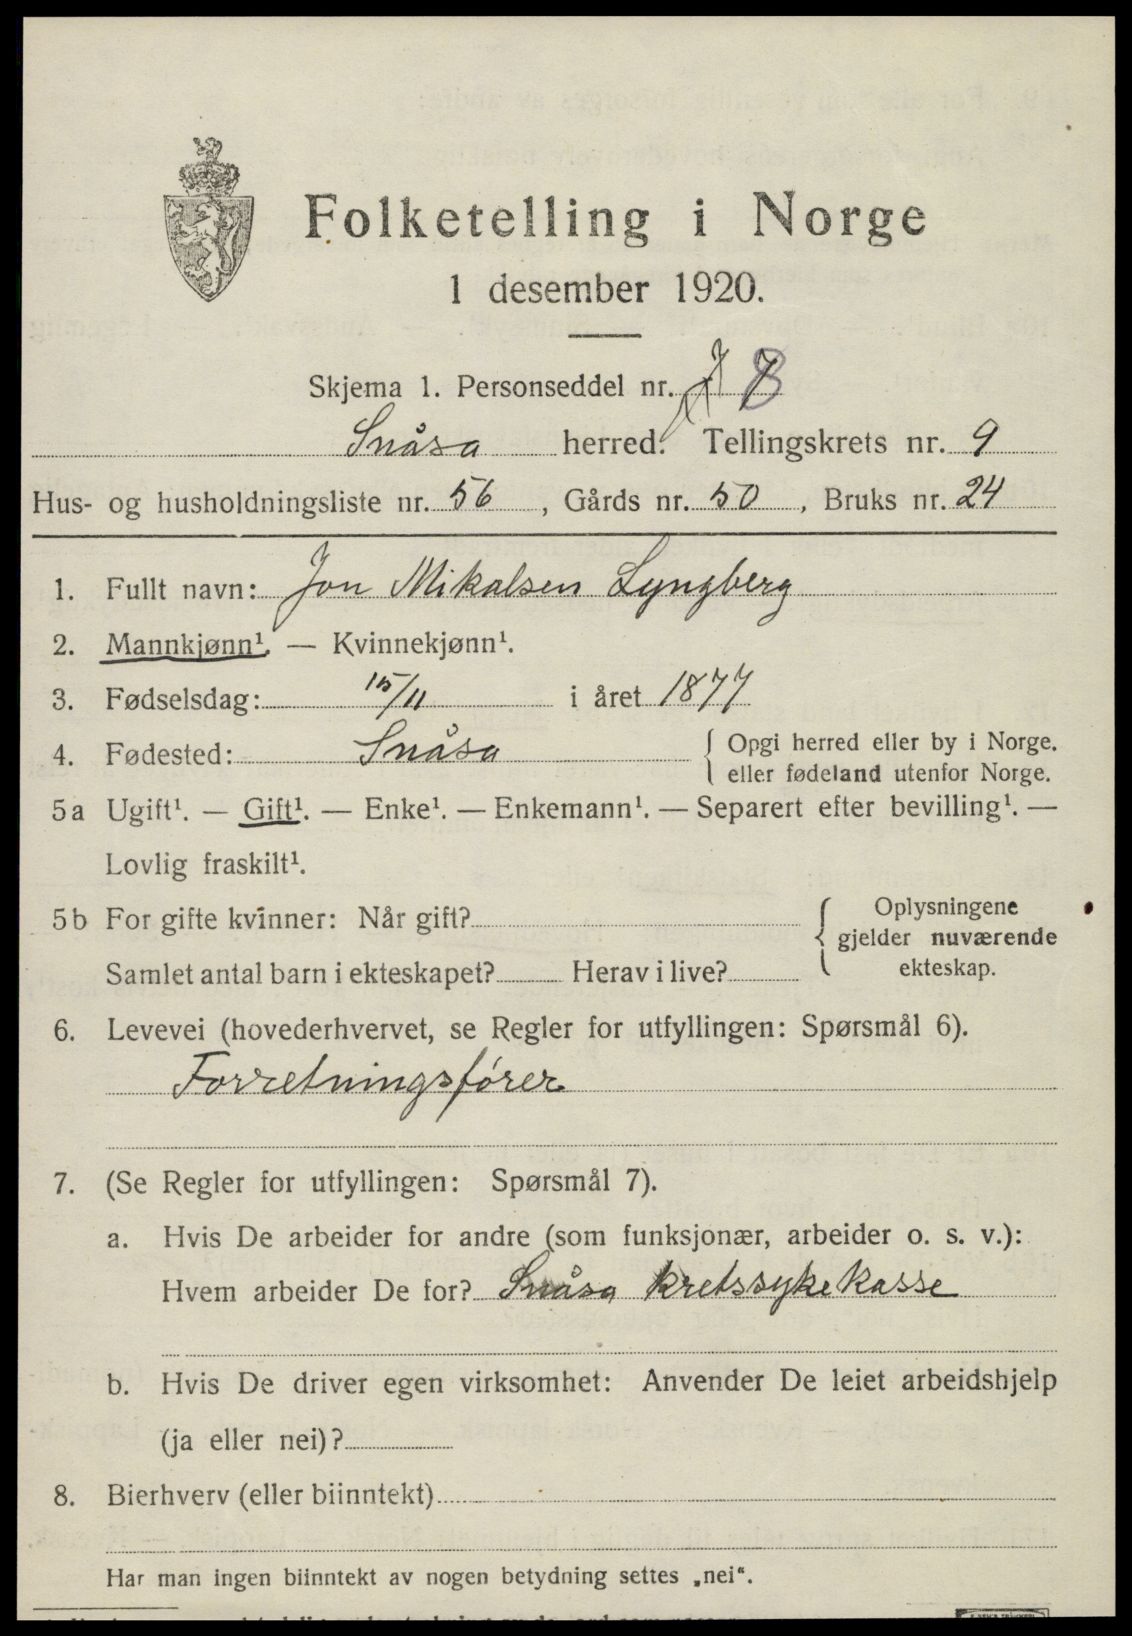 Folketelling i Norge
1 desember 1920.
Skjema 1. Personseddel nr. 8
Snåsa herred. Tellingskrets nr. 9
Hus- og husholdningsliste nr. 56, Gårds nr. 50, Bruks nr. 24
1. Fullt navn: Jon Mikalsen Lyngberg
2. Mannkjønn¹. — Kvinnekjønn¹.
3. Fødselsdag: 15/11 i året 1877
4. Fødested: Snåsa { Opgi herred eller by i Norge.
eller fødeland utenfor Norge.
5a Ugift¹. — Gift¹. — Enke¹. — Enkemann¹. — Separert efter bevilling¹. —
Lovlig fraskilt¹.
5b For gifte kvinner: Når gift? { Oplysningene
gjelder nuværende
ekteskap.
Samlet antal barn i ekteskapet? Herav i live?
6. Levevei (hovederhvervet, se Regler for utfyllingen: Spørsmål 6).
Forretningsfører
7. (Se Regler for utfyllingen: Spørsmål 7).
a. Hvis De arbeider for andre (som funksjonær, arbeider o. s. v.):
Hvem arbeider De for? Snåsa kretssykekasse
b. Hvis De driver egen virksomhet: Anvender De leiet arbeidshjelp
(ja eller nei)?
8. Bierhverv (eller biinntekt)
Har man ingen biinntekt av nogen betydning settes „nei“.